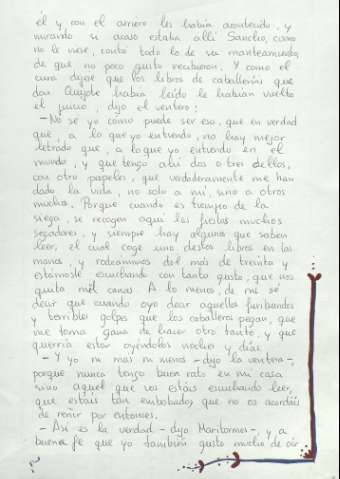 él y con el arriero les había acontecido, y
mirando si acaso estaba allí Sancho, como
no le viese, contó todo lo de su manteamiento,
de que no poco gusto recibieron. Y como el
cura dijese que los libros de caballerías que
don Quijote había leído le habían vuelto
el juicio, dijo el ventero:
- No sé yo cómo puede ser eso, que en verdad
que, a lo que yo entiendo, no hay mejor
letrado que, a lo que yo entiendo en el
mundo, y que tengo ahí dos o tres dellos,
con otros papeles, que verdaderamente me han
dado la vida, no solo a mí, sino a otros
muchos. Porque cuando es tiempo de la
siega, se recogen aquí las fiestas muchos
segadores, y siempre hay algunos que saben
leer, el cual coge uno destos libros en las
manos, y rodeámonos dél más de treinta y
estámosle escuchando con tanto gusto, que nos
quita mil canas. A lo menos, de mí sé
decir que cuando oyo decir aquellos furibundos
y terribles golpes que los caballeros pegan, que
me toma gana de hacer otro tanto, y que
querría estar oyéndolos noches y días.
- Y yo ni más ni menos - dijo la ventera -,
porque nunca tengo buen rato en mi casa
sino aquel que vos estáis escuchando leer,
que estáis tan embobado, que no os acordáis
de reñir por entonces.
- Así es la verdad - dijo Maritornes -, y a
buena fe que yo también gusto mucho de oír